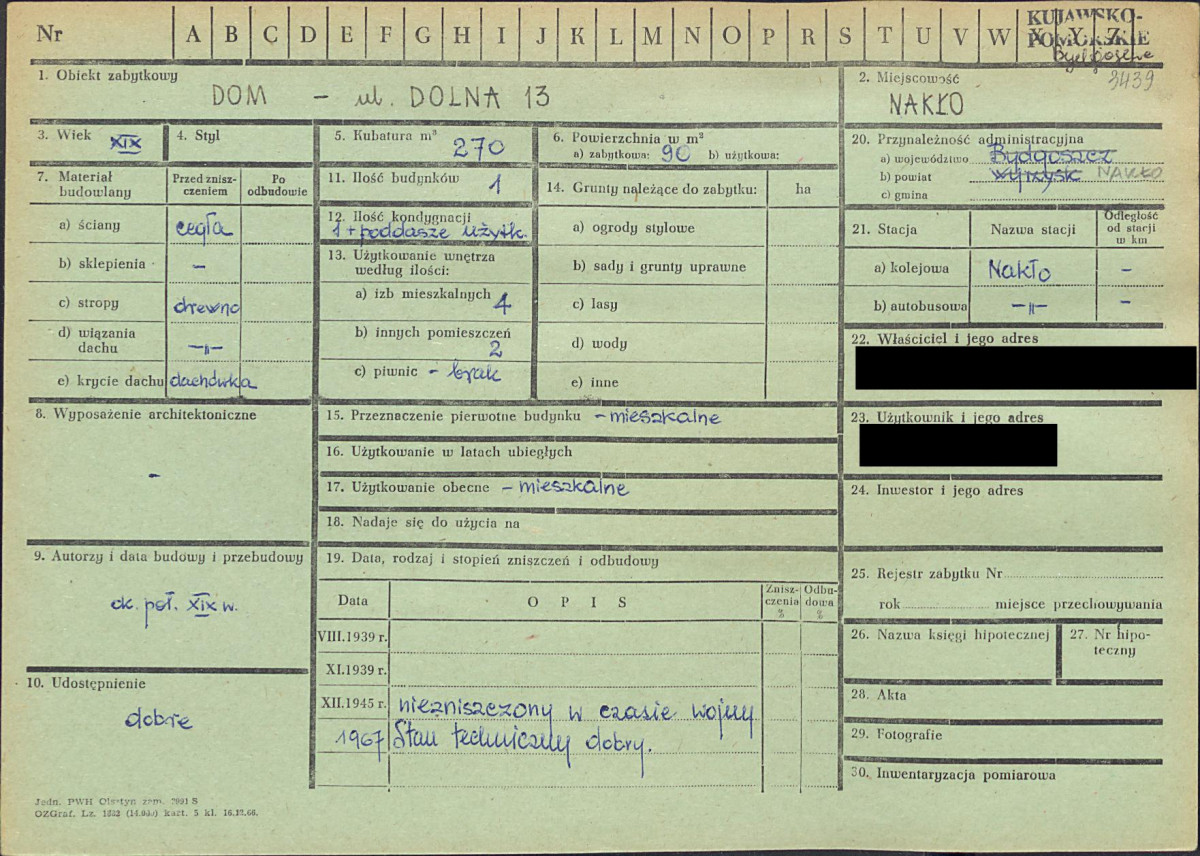 Nr A B C D E F G H I J K L M N O P R S T U V W X Y Z
KUJAWSKO-
POMORSKIE
bydgoskie
3439
1. Obiekt zabytkowy
DOM – ul. DOLNA 13
2. Miejscowość
NAKŁO
3. Wiek XIX
4. Styl
5. Kubatura m³
270
6. Powierzchnia w m²
a) zabytkowa: 90 b) użytkowa:
7. Materiał budowlany
Przed zniszczeniem
Po odbudowie
a) ściany cegła
b) sklepienia –
c) stropy drewno
d) wiązania dachu –〃–
e) krycie dachu dachówka
8. Wyposażenie architektoniczne
–
9. Autorzy i data budowy i przebudowy
ok. poł. XIX w.
10. Udostępnienie
dobre
11. Ilość budynków 1
12. Ilość kondygnacji
1 + poddasze użytk.
13. Użytkowanie wnętrza
według ilości:
a) izb mieszkalnych 4
b) innych pomieszczeń
2
c) piwnic – brak
14. Grunty należące do zabytku: ha
a) ogrody stylowe
b) sady i grunty uprawne
c) lasy
d) wody
e) inne
15. Przeznaczenie pierwotne budynku – mieszkalne
16. Użytkowanie w latach ubiegłych
17. Użytkowanie obecne – mieszkalne
18. Nadaje się do użycia na
19. Data, rodzaj i stopień zniszczeń i odbudowy
Data
OPIS
Zniszczenia %
Odbudowa %
VIII.1939 r.
XI.1939 r.
XII.1945 r. niezniszczony w czasie wojny
1967 Stan techniczny dobry.
20. Przynależność administracyjna
a) województwo Bydgoszcz
b) powiat Wyrzysk NAKŁO
c) gmina
21. Stacja
Nazwa stacji
Odległość
od stacji
w km
a) kolejowa Nakło –
b) autobusowa –〃– –
22. Właściciel i jego adres
23. Użytkownik i jego adres
24. Inwestor i jego adres
25. Rejestr zabytku Nr
rok miejsce przechowywania
26. Nazwa księgi hipotecznej
27. Nr hipo-
teczny
28. Akta
29. Fotografie
30. Inwentaryzacja pomiarowa
Jedn. PWH Olsztyn zam. 2991 S
OZGraf. Lz. kart. 5 kl. 16.12.66.